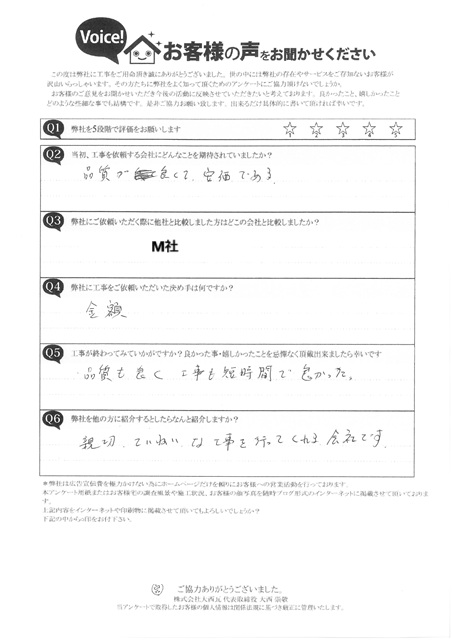 Voice!
お客様の声をお聞かせください
この度は弊社に工事をご用命頂き誠にありがとうございました。世の中には弊社の存在やサービスをご存知ないお客様が
沢山いらっしゃいます。その方たちに弊社をよく知って頂くためのアンケートにご協力頂けないでしょうか。
お客様のご意見をお聞かせいただき今後の活動に反映させていただきたいと考えております。良かったこと、嬉しかったこと
どのような些細な事でも結構です。是非ご協力お願い致します。出来るだけ具体的に書いて頂ければ幸いです。
Q1 弊社を5段階で評価をお願いします ☆ ☆ ☆ ☆ ☆
Q2 当初、工事を依頼する会社にどんなことを期待されていましたか?
品質が良くて、安価である。
Q3 弊社にご依頼いただく際に他社と比較しました方はどこの会社と比較しましたか?
M社
Q4 弊社に工事をご依頼いただいた決め手は何ですか?
金額
Q5 工事が終わってみていかがですか?良かった事・嬉しかったことを忌憚なく頂戴出来ましたら幸いです
・品質も良く 工事も短時間で良かった。
Q6 弊社を他の方に紹介するとしたらなんと紹介しますか?
親切、ていねいな工事を行ってくれる会社です。
*弊社は広告宣伝費を極力かけない為にホームページだけを頼りにお客様への営業活動を行っております。
本アンケート用紙またはお客様宅の調査風景や施工状況、お客様の顔写真を随時ブログ形式のインターネットに掲載させて頂いております。
上記内容をインターネットや印刷物に掲載させて頂いてもよろしいでしょうか?
下記の中から○印をお付け下さい。
ご協力ありがとうございました。
株式会社大西瓦 代表取締役 大西 崇敬
当アンケートで取得したお客様の個人情報は関係法規に基づき厳正に管理いたします。